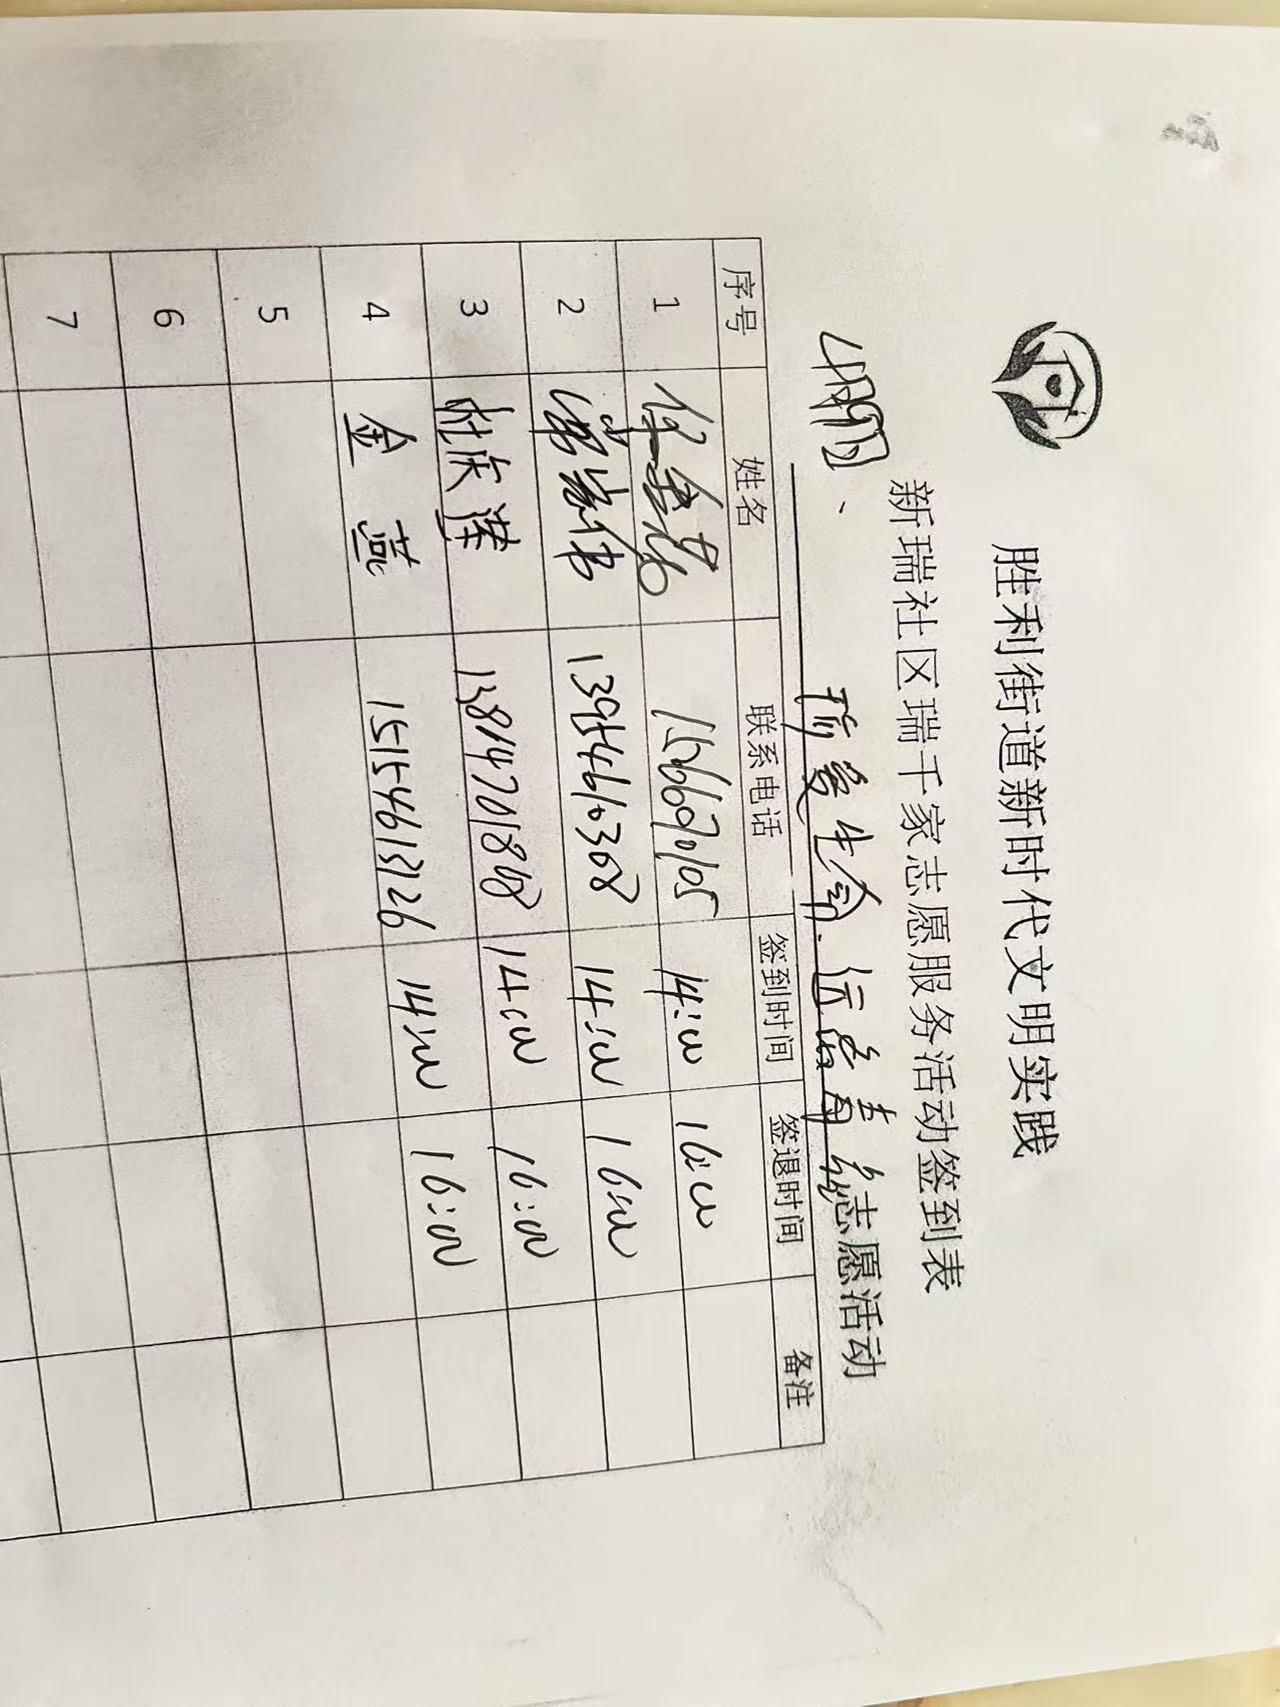 胜利街道新时代文明实践
新瑞社区瑞千家志愿服务活动签到表
4月9日、珍爱生命.远离毒品志愿活动
序号 姓名 联系电话 签到时间 签退时间 备注
1 14:00 16:00
2 13954610368 14:00 16:00
3 杜庆莲 14:00 16:00
4 金燕 15154613126 14:00 16:00
5
6
7